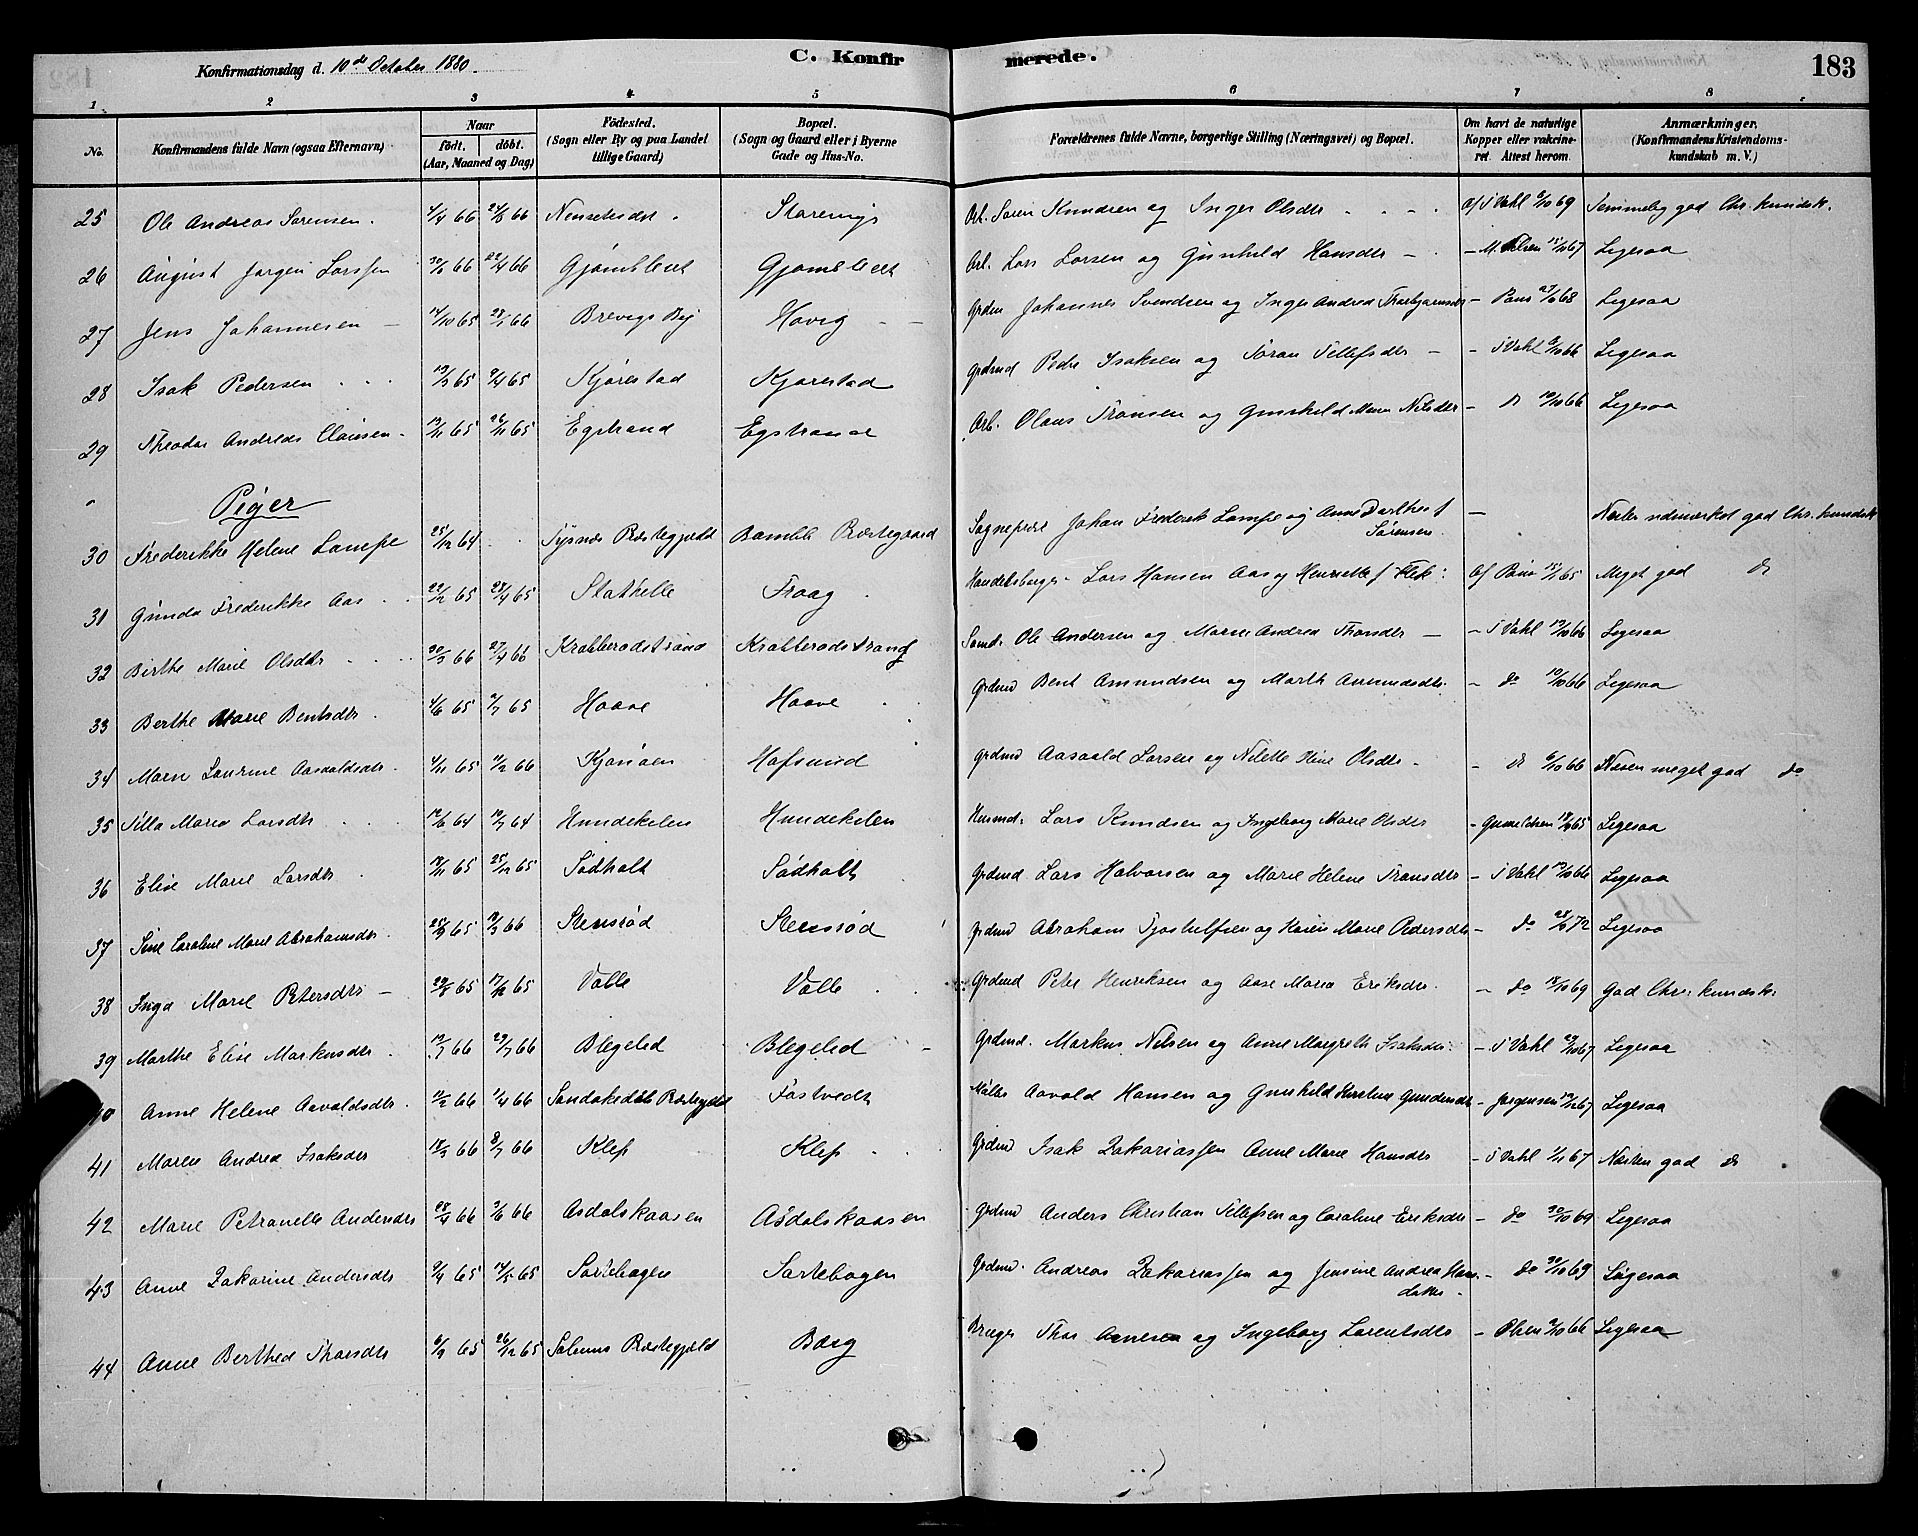 Konfirmationsdag d. 10de October 1880.
C. Konfirmerede.
183
1 2 3 4 5 6 7 8
No.
Konfirmandens fulde Navn (ogsaa Efternavn)
Naar
födt. döbt.
(Aar, Maaned og Dag)
Födested.
(Sogn eller By og paa Landet
tillige Gaard)
Bopæl.
(Sogn og Gaard eller i Byerne
Gade og Hus-No.
Forældrenes fulde Navne, borgerlige Stilling (Næringsvei) og Bopæl.
Om havt de naturlige
Kopper eller vakcine-
ret. Attest herom.
Anmærkninger,
(Konfirmandens Kristendoms-
kundskab m. V.)
25 Ole Andreas Sørensen. 4/4 66 Arb. Søren Knudsen og Inger Olsdtr Af J Vahl 6/10 69 god Chr. kundsk.
26 August Jørgen Larssen 66 22/4 66 Gjømlelet Gjømlelet Arb. Lars Larsen og Gunhild Hansdtr - 67 Ligesaa
27 Jens Johannesen 14/10 65 28/1 66 Brevigs Bej Hovig Grdm Johannes Svendsen og Inger Andrea Thorbjørnsdtr - Paus 68 Ligesaa
28 Isak Pedersen 19/3 65 9/4 65 Kjørestad Kjørestad Grdmd Peder Isaksen og Søran Tellefsdtr - J Vahl 9/10 66 Ligesaa
29 Theodor Andreas Olausen 12/11 65 26/11 65 Egstrand Egstrand Arb. Olaus Fransen og Gunhild Maren Nilsdtr - do 10/10 66 Ligesaa
Piger
30 Frederikke Helene Lampe 25/12 64 Tysnæs Præstegjæld Bamble Præstegaard Sogneprest Johan Frederik Lampe og Anne Dorthea f Sørensen - udmærket god Chr. kundsk
31 Gunda Frederikke Aas 22/2 65 23/4 65 Stathelle Traag Handelsborger Lars Hansen Aas og Henriette f Flek: Af Paus 65 Meget god do
32 Birthe Marie Olsdtr 20/3 66 27/4 66 Krabberødstrand Krabberødstrand Sømd. Ole Andersen og Maren Andrea Thorsdtr - J Vahl 10/10 66 Ligesaa
33 Berthe Marie Bentsdtr. 4/6 65 9/7 65 Haave Haave Grdmd Bent Amundsen og Marth Amundsdtr. - do 10/10 66 Ligesaa
34 Maren Laurine Aasvaldsdtr. 4/11 65 11/2 66 Kjønøen Hafsund Grdmd Aasvald Larsen og Nilette Oline Olsdtr. - do 6/10 66 Næsten meget god do
35 Tilla Maria Larsdtr 12/6 64 64 Hundekilen Hundekilen Husmd: Lars Knudsen og Ingeborg Marie Olsdtr - 65 Ligesaa
36 Elise Marie Larsdtr 12/11 65 25/12 65 Sødholt Sødholt Grdmd Lars Halvorsen og Marie Helene Fransdtr - J Vahl 10/10 66 Ligesaa
37 Sine Caroline Marie Abrahamsdtr. 65 66 Stensrød Stensrød Grdmd Abraham Tjostulfsen og Karen Marie Pedersdtr - do 72 Ligesaa
38 Inga Marie Petersdtr - 65 65 Valle Valle Grdmd Peter Henriksen og Aase Maria Eriksdtr. - do 18/10 69 God Chr: kundsk:
39 Marthe Elise Markusdtr. 66 29/7 66 Blegelid Blegelid Grdmd. Markus Nilsen og Anne Margreth Isaksdtr. - J Vahl 29/10 67 Ligesaa
40 Anne Helene Aavoldsdtr. 11/2 66 1/4 66 Sandøkedals Præstegjeld Fostvedt Aavold Hansen og Gunhild Kirstine - Jørgensen 67 Ligesaa
41 Maren Andrea Isaksdtr 18/3 66 8/7 66 Klep Klep Grdmd Isak Zakariassen Anne Marie Hansdtr - J Vahl 67 Næsten god do
42 Marie Petronelle Andersdtr 28/4 66 66 Asdalskaasen Asdalskaasen Grdmd Anders Christian Tellefsen og Caroline Eriksdtr - do 30/10 69 Ligesaa
43 Anne Zakarine Andersdtr 9/4 65 14/5 65 Sortebogen Sortebogen Grdmd. Andreas Zakariassen og Jensine Andrea Hans- datter. - do 30/10 69 Ligesaa
44 Anne Berthed Thorsdtr 65 26/12 65 Solums Præstegjæld Borg Thor og Ingeborg Larentsdtr - Olsen 9/10 66 Ligesaa